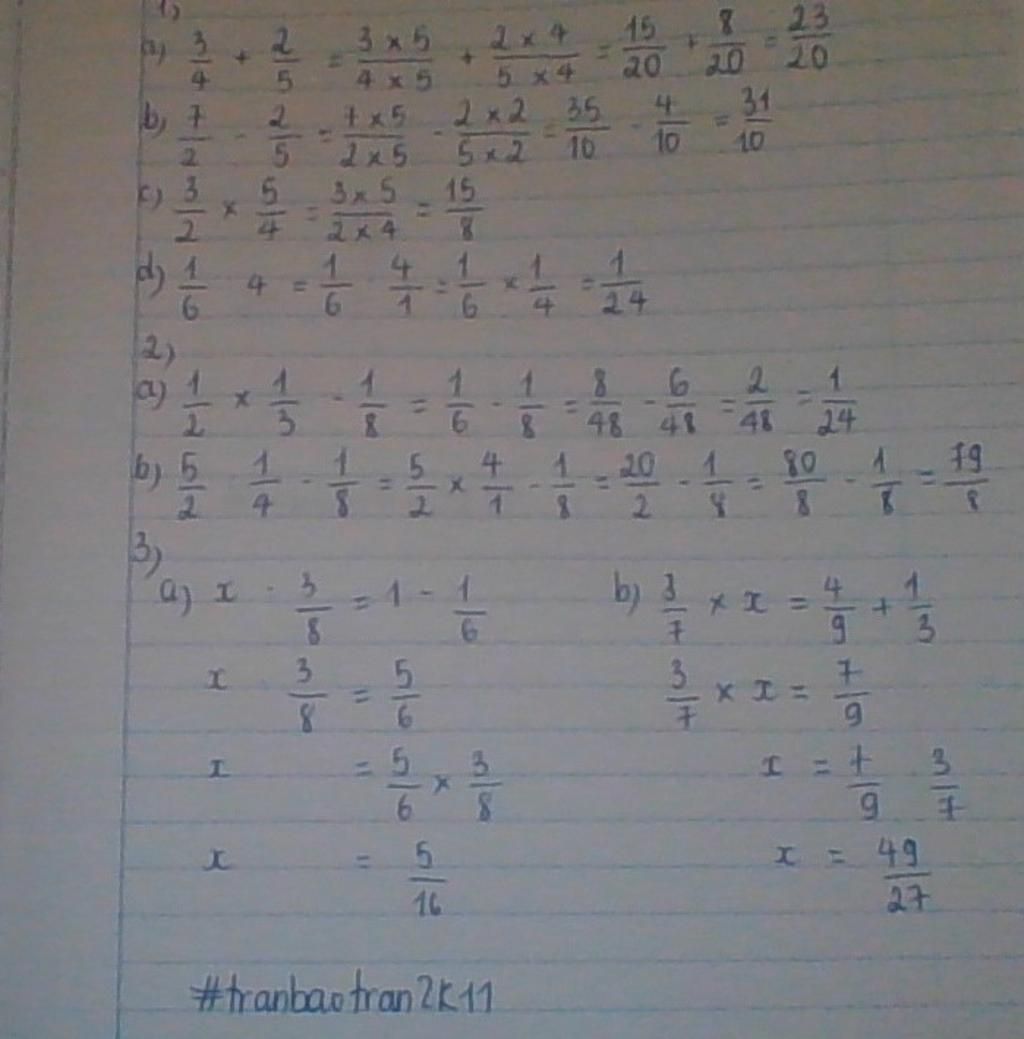 1)
a) 3/4 + 2/5 = 3 × 5 / 4 × 5 + 2 × 4 / 5 × 4 = 15/20 + 8/20 = 23/20
b) 7/2 - 2/5 = 7 × 5 / 2 × 5 - 2 × 2 / 5 × 2 = 35/10 - 4/10 = 31/10
c) 3/2 × 5/4 = 3 × 5 / 2 × 4 = 15/8
d) 1/6 : 4 = 1/6 : 4/1 = 1/6 × 1/4 = 1/24
2)
a) 1/2 × 1/3 - 1/8 = 1/6 - 1/8 = 8/48 - 6/48 = 2/48 = 1/24
b) 5/2 : 1/4 - 1/8 = 5/2 × 4/1 - 1/8 = 20/2 - 1/8 = 80/8 - 1/8 = 79/8
3)
a) x : 3/8 = 1 - 1/6 b) 3/7 × x = 4/9 + 1/3
x : 3/8 = 5/6 3/7 × x = 7/9
x = 5/6 × 3/8 x = 7/9 : 3/7
x = 5/16 x = 49/27
#tranbaotran2k11